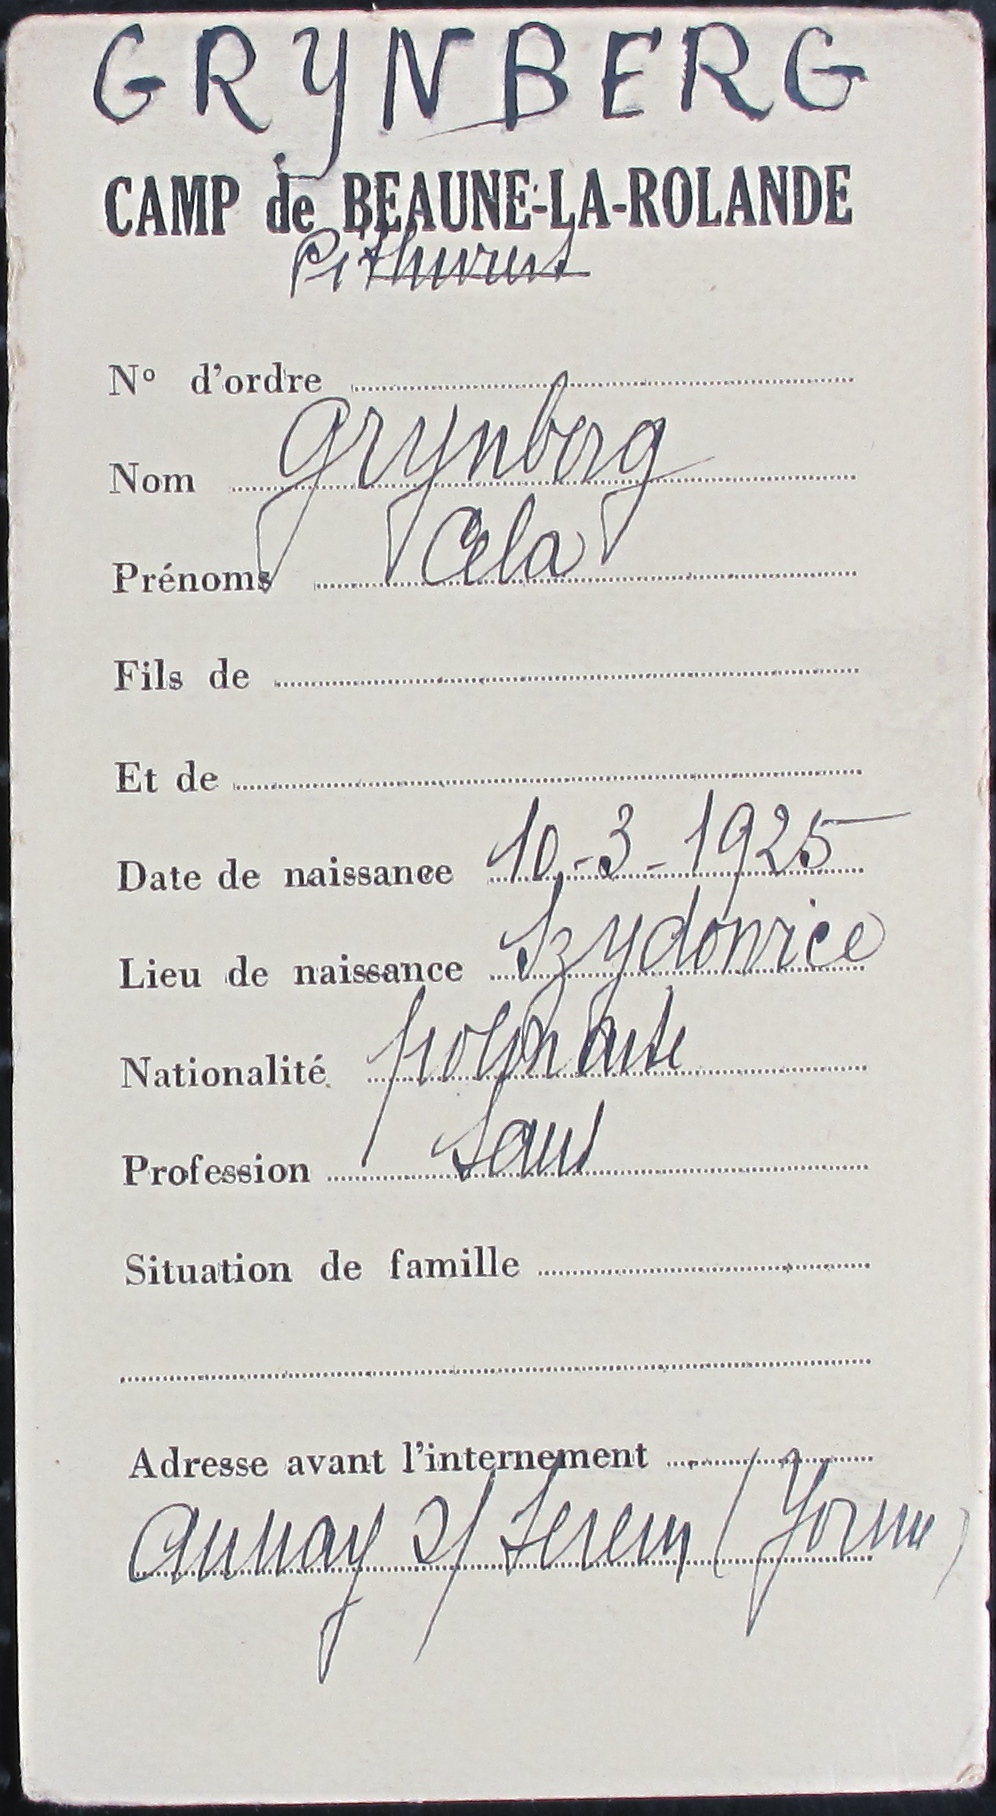 GRYNBERG
CAMP de BEAUNE-LA-ROLANDE
Pithiviers
N° d'ordre
Nom Grynberg
Prénoms Cela
Fils de
Et de
Date de naissance 10-3-1925
Lieu de naissance Szydowice
Nationalité polonaise
Profession Sans
Situation de famille
Adresse avant l'internement
Annay s/ Serein (Yonne)